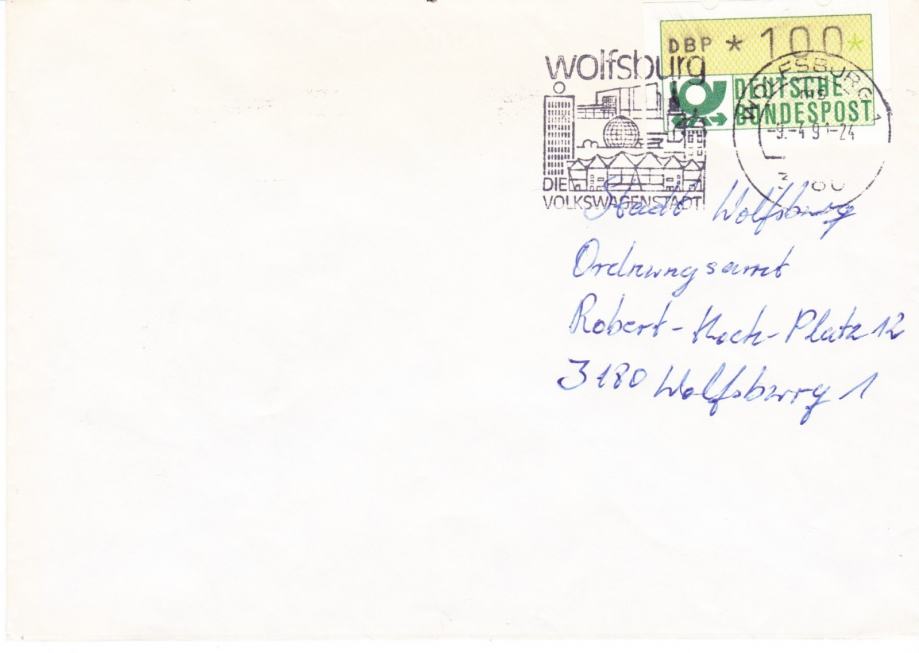 DBP *100*
DEUTSCHE
BUNDESPOST
wolfsburg
DIE
VOLKSWAGENSTADT
WOLFSBURG 1
-9.-4.91-24
Stadt Wolfsburg
Ordnungsamt
Robert-Koch-Platz 12
3180 Wolfsburg 1